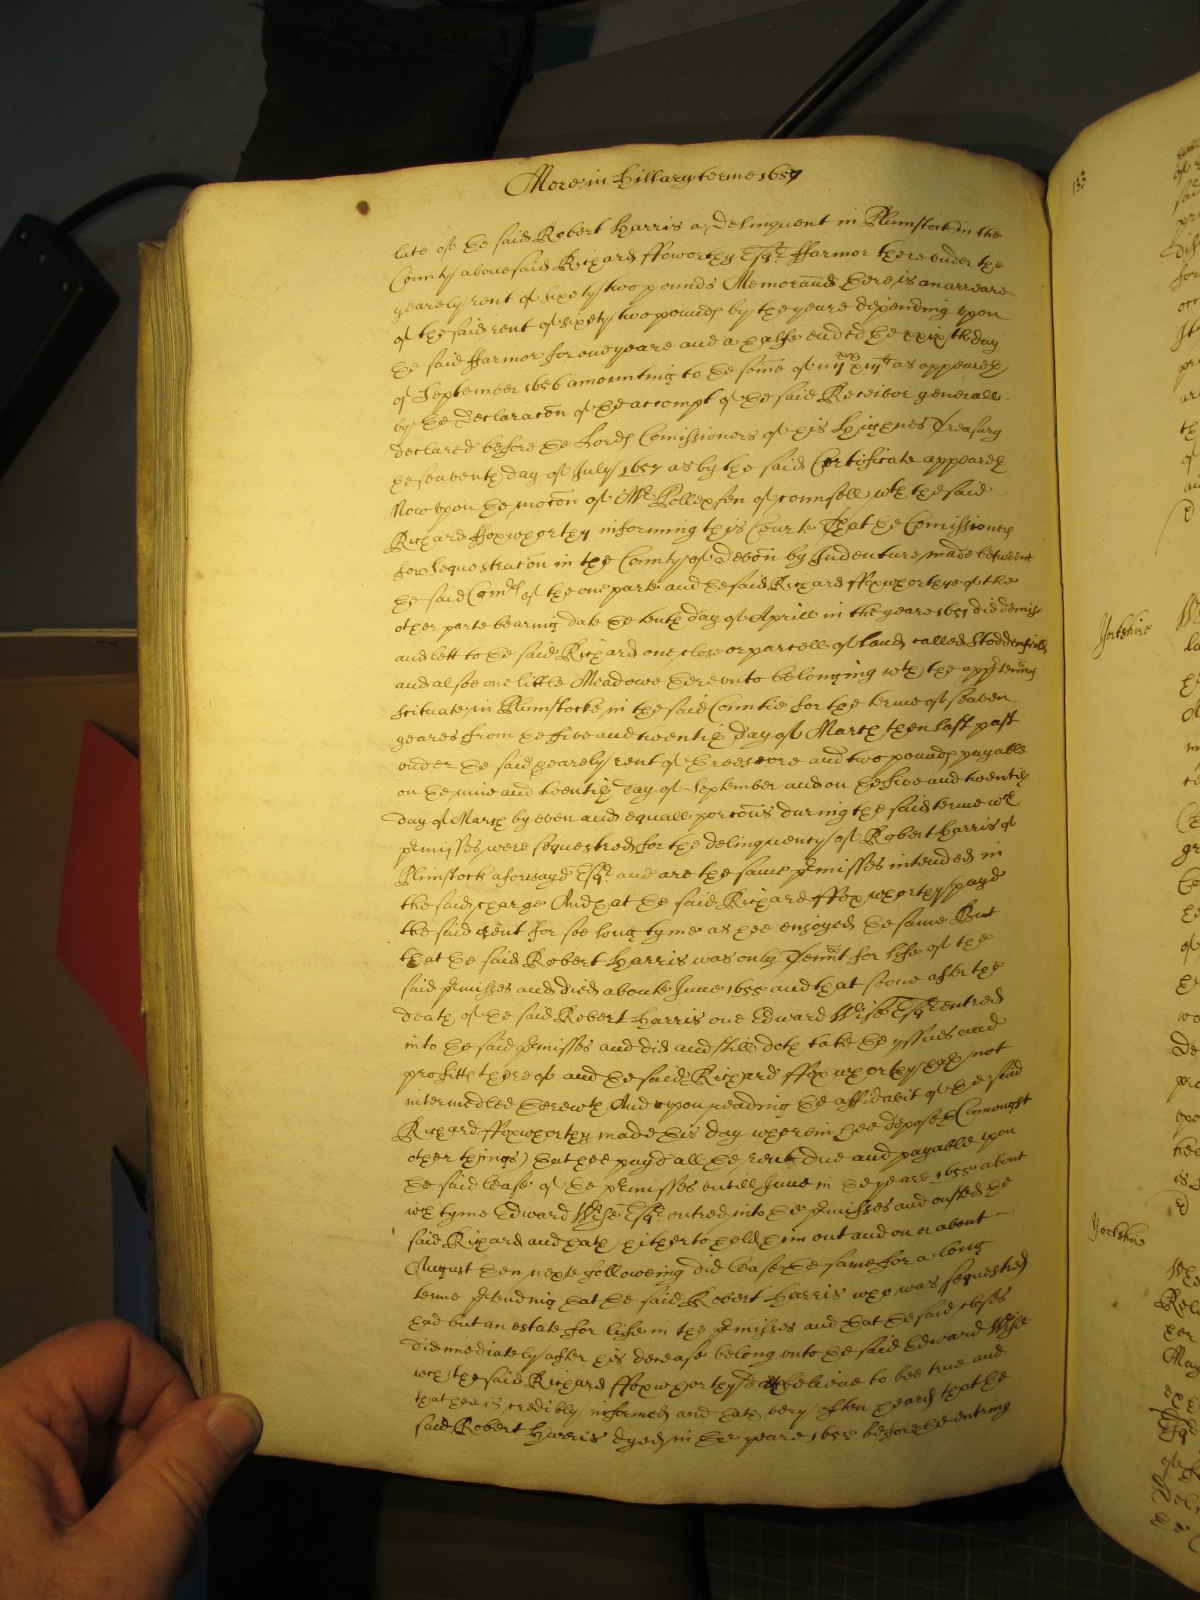 More in Hillary terme 1657
late of the said Robert Harris a delinquent in Plumstock in the
County abovesaid Richard ffoxworthy Esqr. ffarmor there under the
yearely rent of sixety two pounds Memorand there is an arreare
of the said rent of sixety two pounds by the yeare depending upon
the said ffarmor for one yeare and a halfe ended the xxixth day
of September 1656 amounting to the some of iiijxx xiijli as appeareth
by the Declaracon of the accompt of the said Receivor generall
declared before the Lords Comissioners of his Highnes Treasury
the seaventh day of July 1657 as by the said Certificate appeareth
Now upon the mocon of Mr Pollexfen of counsell wth the said
Richard ffoxworthy informing this Courte That the Comissioners
for sequestracon in the County of Devon by Indenture made betweene
the said Comrs of the one parte and the said Richard ffoxworthye of the
other parte bearing date the tenth day of Aprill in the yeare 1651 did demise
and lett to the said Richard one close or parcell of land called
and alsoe one little Meadowe thereunto belonging wth the apptennces
scituate in Plumstocke in the said Countie for the terme of seaven
yeares from the five and twentith day of March then last past
under the said yearely rent of threescore and two pounds payable
on the nine and twentith day of September and on the five and twentith
day of March by even and equall porcons during the said terme wch
pmisses were sequestred for the delinquency of Robert Harris of
Plimstock aforesayd Esqr. and are the same pmisses intended in
the said charge And that the said Richard ffoxworthy payd
the said rent for soe long tyme as hee enjoyed the same But
that the said Robert Harris was only Tennt for life of the
said pmisses and died aboute June 1655 and that soone after the
death of the said Robert Harris one Edward Wise Esqr entred
into the said pmisses and did and still doth take the yssues and
profitts thereof and the said Richard ffoxworthy hath not
intermedled therewth And upon reading the affidavit of the said
Richard ffoxworthy made this day wherein hee deposeth (amongst
other things) that hee payd all the rent due and payable upon
the said lease of the pmisses untill June in the yeare 1655 about
wch tyme Edward Wise Esqr. entred into the pmisses and ousted the
said Richard and hath hitherto held him out and on or about
August then next followeing did lease the same for a long
terme ptending that the said Robert Harris who was sequestred
had but an estate for life in the pmisses and that the said closes
did imediately after his decease belong unto the said Edward Wise
wch the said Richard ffoxworthy doth beleeve to bee true and
that hee is credibly informed and hath very often heard that the
said Robert Harris dyed in the yeare 1655 before the entring
133
Yorkshire
Yorkshire